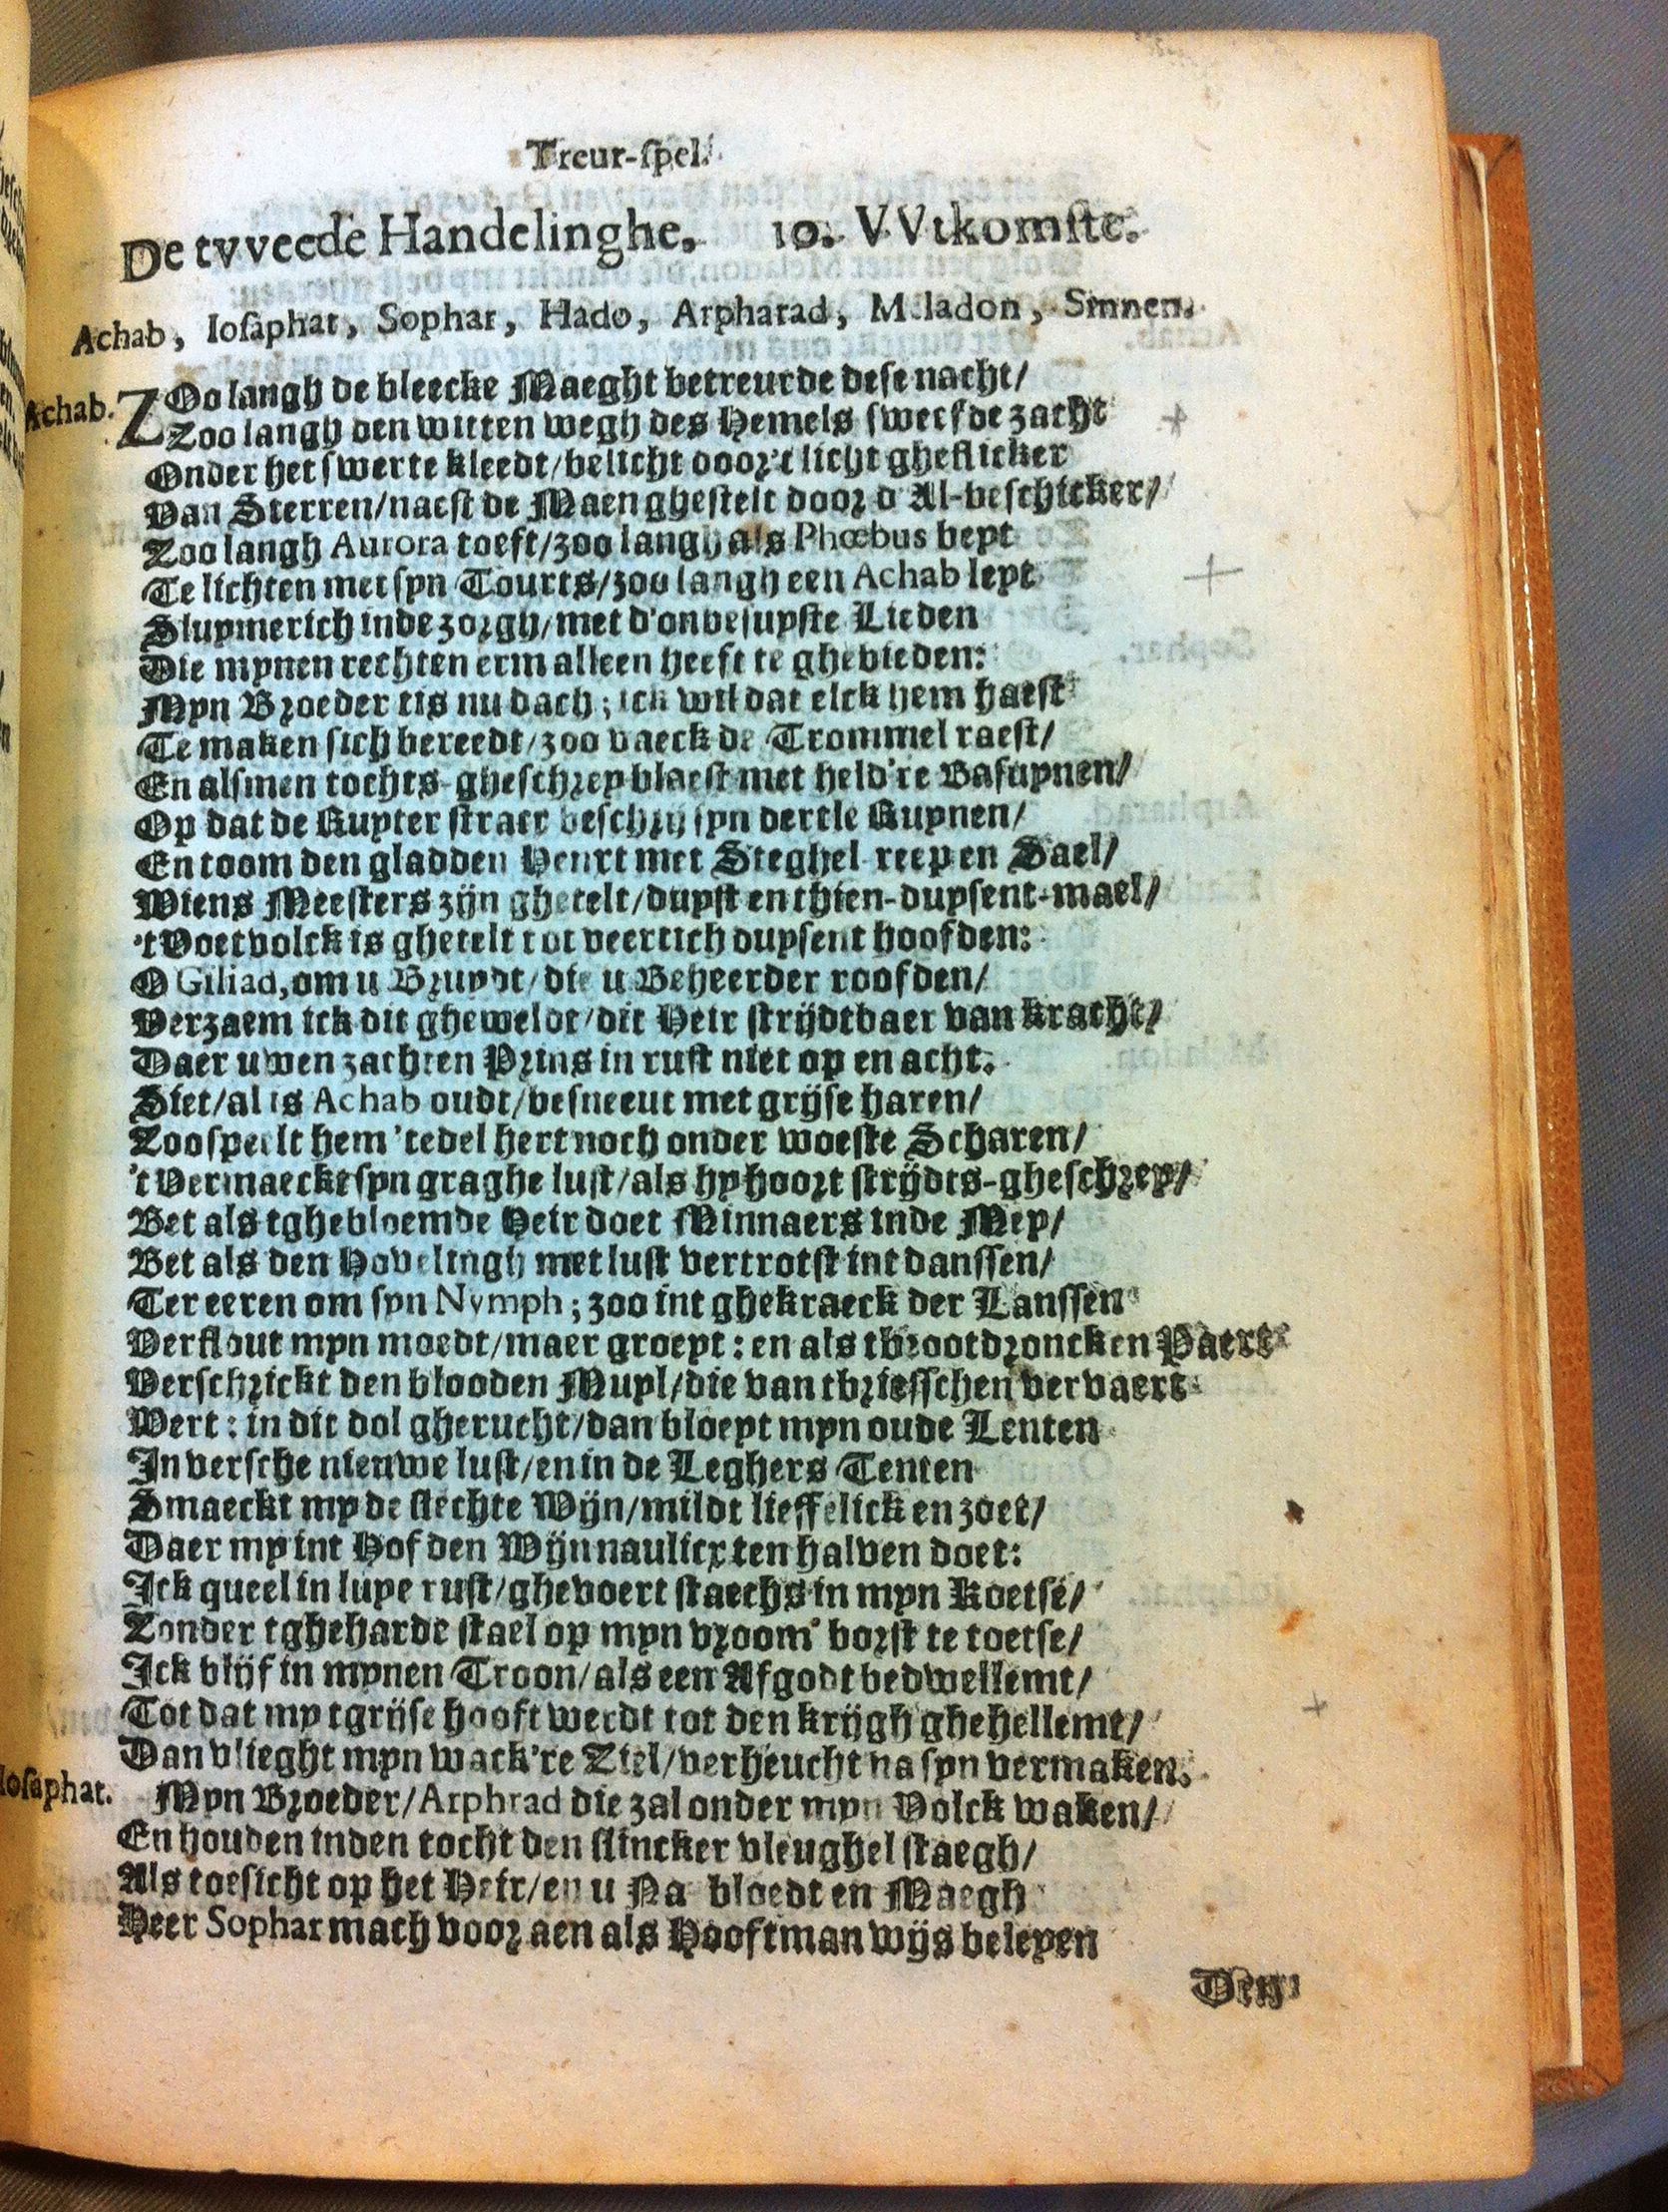 Treur-spel.
De tvveede Handelinghe. 10. VVtkomste.
Achab, Iosaphat, Sophar, Hado, Arpharad, M ladon, Sinnen.
Achab. ZOo langh de bleecke Maeght betreurde dese nacht/
Zoo langh den witten wegh des Hemels sweefde zacht
Onder het swerte kleedt/belicht door't licht gheflicker
Van Sterren/naest de Maen ghestelt door d'Al-beschicker/
Zoo langh Aurora toeft/zoo langh als Phœbus beyt
Te lichten met syn Tourts/zoo langh een Achab leyt
Sluymerich inde zorgh/met d'onbesuyste Lieden
Die mynen rechten erm alleen heeft te ghebieden:
Myn Broeder tis nu dach; ick wil dat elck hem haest
Te maken sich bereedt/zoo vaeck de Trommel raest/
En alsmen tochts-gheschrey blaest met held're Basuynen/
Op dat de Ruyter straet beschry syn dertle Ruynen/
En toom den gladden Henxt met Steghel-reep en Sael/
Wiens Meesters zijn ghetelt/duyst en thien-duysent-mael/
't Voetvolck is ghetelt tot veertich duysent hoofden:
O Giliad, om u Bruydt/die u Beheerder roofden/
Verzaem ick dit gheweldt/dit Heir strijdtbaer van kracht/
Daer uwen zachten Prins in rust niet op en acht.
Siet/al is Achab oudt/besneeut met grijse haren/
Zoo speelt hem 'tedel hert noch onder woeste Scharen/
't Vermaeckt syn graghe lust/als hy hoort strijdts-gheschrey/
Bet als tghebloemde Heir doet Minnaers inde Mey/
Bet als den Hovelingh met lust vertrotst int danssen/
Ter eeren om syn Nymph; zoo int ghekraeck der Lanssen
Verflout myn moedt/maer groeyt: en als tbrootdroncken Paert
Verschrickt den blooden Muyl/die van tbriesschen vervaert
Wert: in dit dol gherucht/dan bloeyt myn oude Lenten
In versche nieuwe lust/en in de Leghers Tenten
Smaeckt my de slechte Wijn/mildt lieffelick en zoet/
Daer my int Hof den Wijn naulicx ten halven doet:
Ick queel in luye rust/ghevoert staechs in myn Koetse/
Zonder tgheharde stael op myn vroom' borst te toetse/
Ick blijf in mynen Troon/als een Afgodt bedwellemt/
Tot dat my tgrijse hooft werdt tot den krijgh ghehellemt/
Dan vlieght myn wack're Ziel/verheucht na syn vermaken.
Iosaphat. Myn Broeder/Arphrad die zal onder myn Volck waken/
En houden inden tocht den slincker vleughel staegh/
Als toesicht op het Heir/en u Na bloedt en Maegh
Heer Sophar mach voor aen als Hooftman wijs beleyen
Den